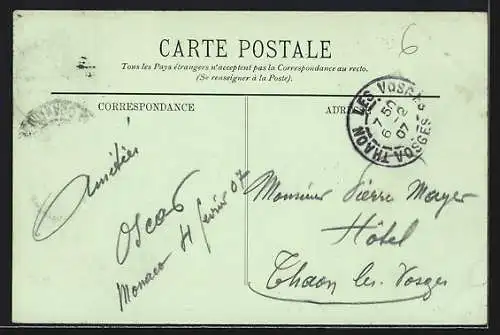 6
CARTE POSTALE
Tous les Pays étrangers n'acceptent pas la Correspondance au recto.
(Se renseigner à la Poste).
CORRESPONDANCE
THAON LES VOSGES
VOSGES
7 55
6 - 2
07
Amitiés
Oscar
Monaco 4 février 07
Monsieur Pierre Mayer
Hôtel
Thaon les Vosges